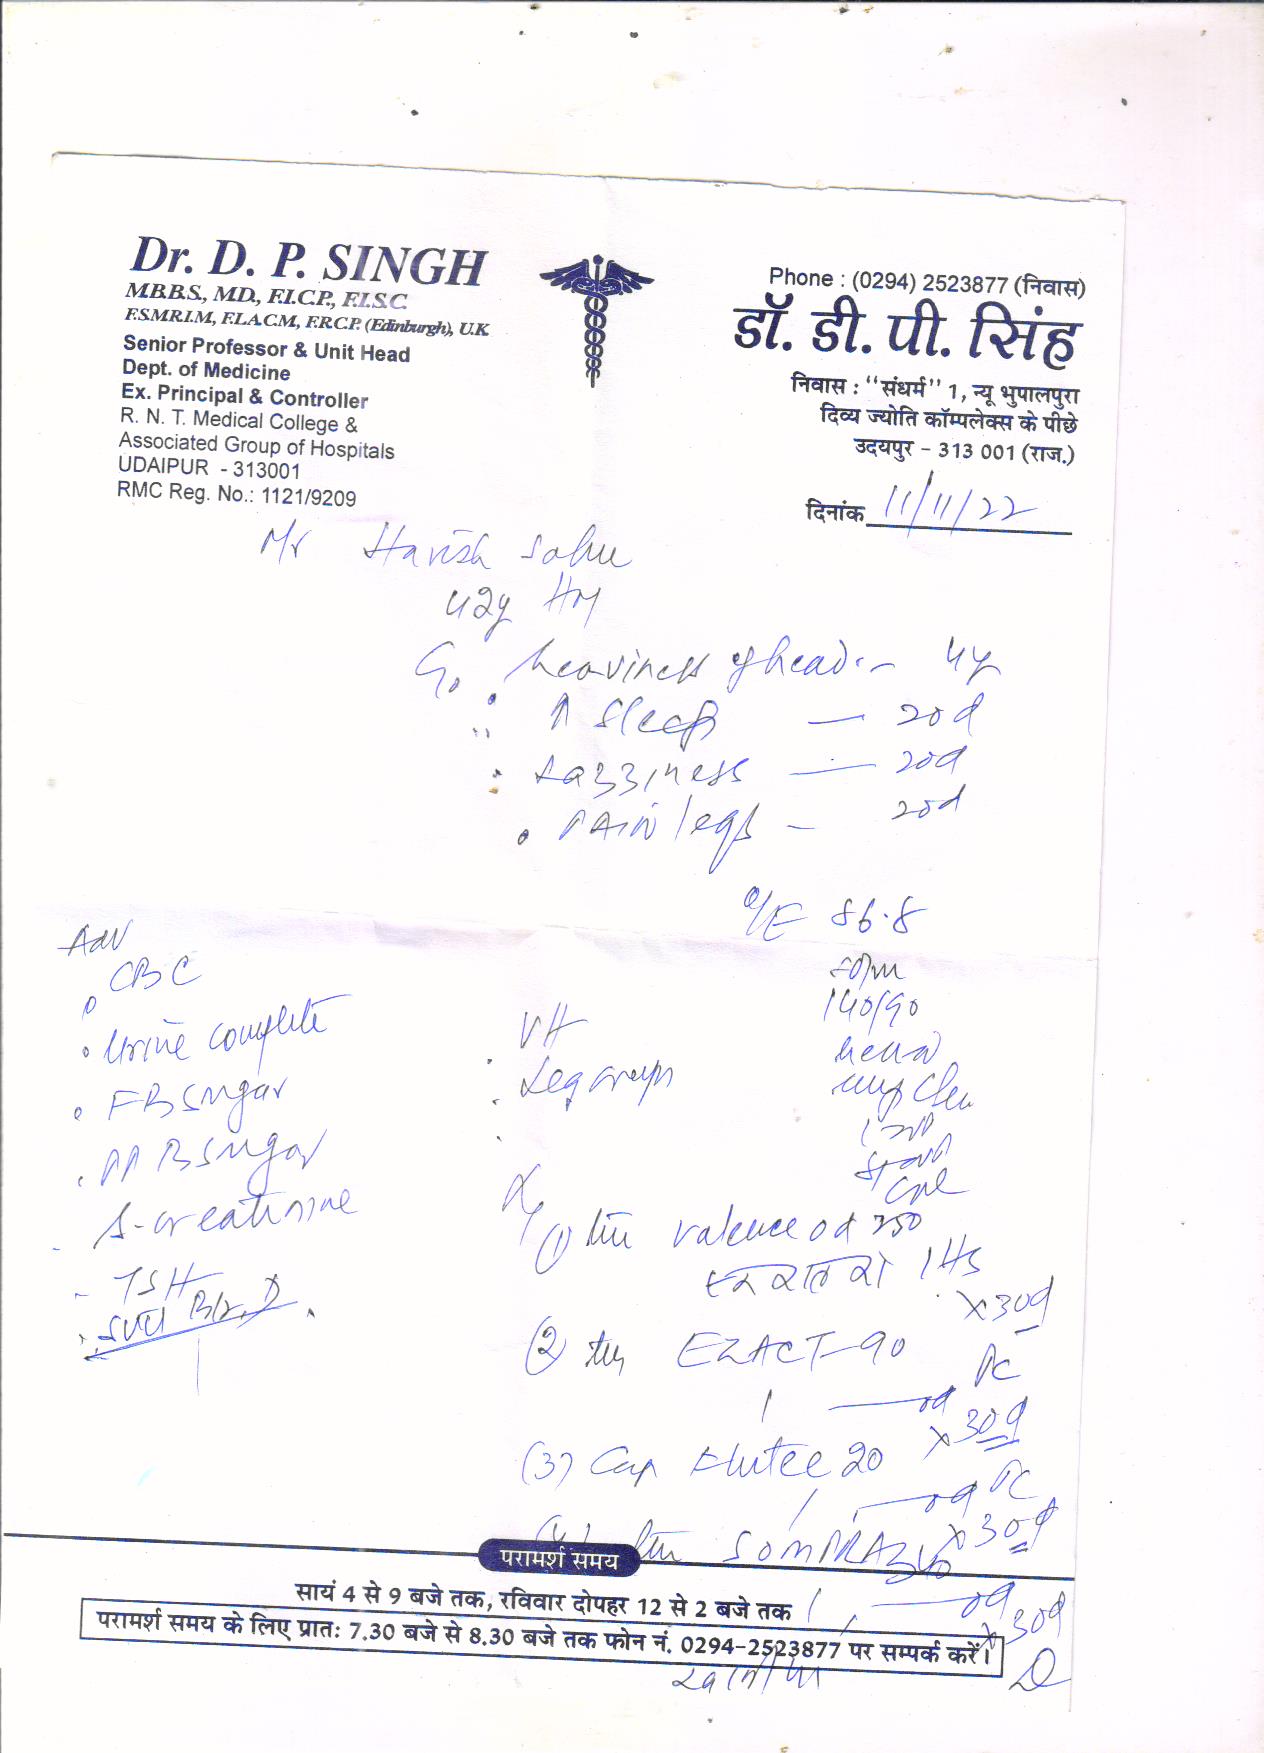 Dr. D. P. SINGH
M.B.B.S., M.D., F.I.C.P., F.I.S.C
F.S.M.R.I.M, F.I.A.C.M, F.R.C.P. (Edinburgh), U.K
Senior Professor & Unit Head
Dept. of Medicine
Ex. Principal & Controller
R. N. T. Medical College &
Associated Group of Hospitals
UDAIPUR - 313001
RMC Reg. No.: 1121/9209
Phone : (0294) 2523877 (निवास)
डॉ. डी. पी. सिंह
निवास : "संधर्म" 1, न्यू भुपालपुरा
दिव्य ज्योति कॉम्पलेक्स के पीछे
उदयपुर - 313 001 (राज.)
दिनांक 11/11/22
Mr Harish Sahu
42y
heaviness of head - 4y
↑ sleep — 20d
Lazziness — 20d
PAIN legs — 20d
O/E 86.8
140/90
Adv
CBC
Urine complete
FBSugar
PPBSugar
S-creatinine
TSH
VH
Leg cramps
(1) valence od 250
1 HS
x 30d
(2) EZACT-90
1 — od PC
x 30d
(3) Cap 20
1 — od PC
x 30d
SOMPRAZ 40
1 — od
x 30d
परामर्श समय
सायं 4 से 9 बजे तक, रविवार दोपहर 12 से 2 बजे तक
परामर्श समय के लिए प्रात: 7.30 बजे से 8.30 बजे तक फोन नं. 0294-2523877 पर सम्पर्क करें।